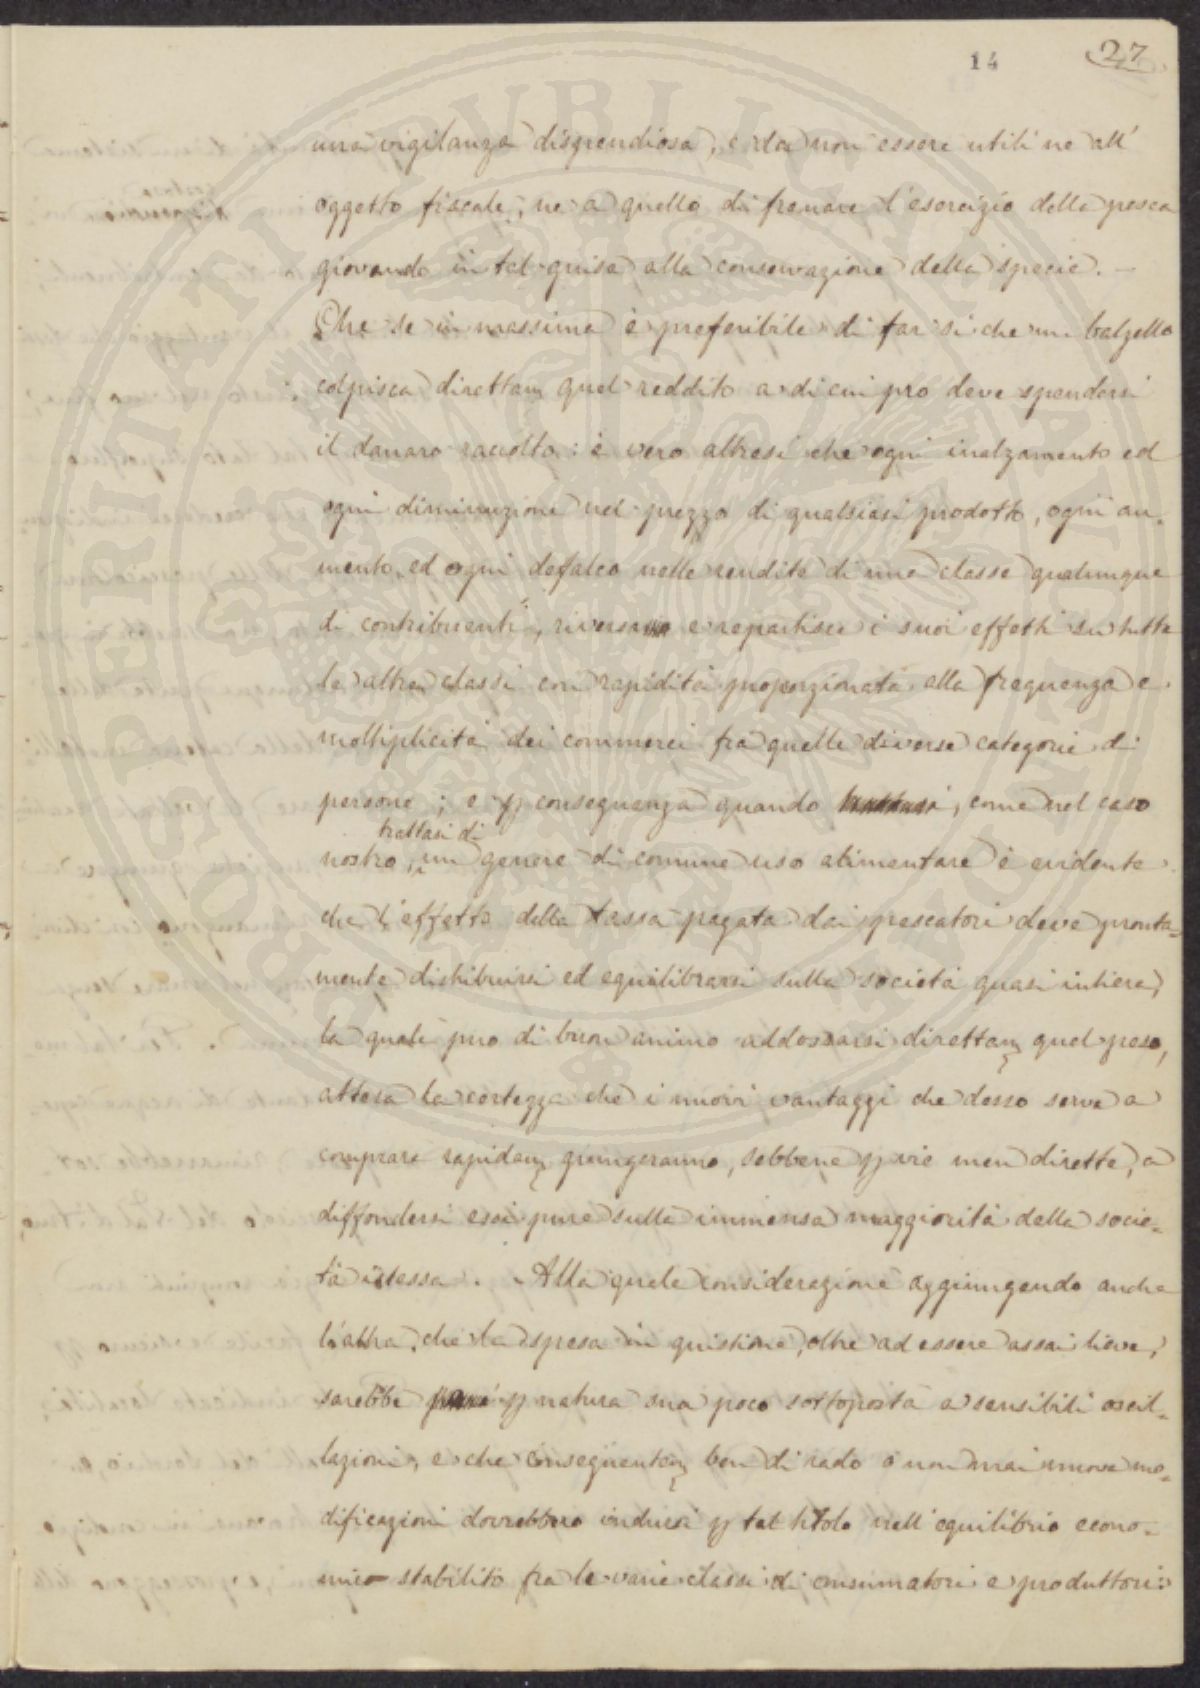 14 27
una vigilanza dispendiosa, e da non essere utili ne all'
oggetto fiscale, ne a quello di frenare l'esercizio della pesca
giovando in tal guisa alla conservazione della specie. —
Che se in massima è preferibile di far si che un balzello
colpisca direttam quel reddito a di cui prò deve spendersi
il danaro raccolto: è vero altresì che ogni inalzamento ed
ogni diminuzione nel prezzo di qualsiasi prodotto, ogni au-
mento, ed ogni defalco nelle rendite di una classe qualunque
di contribuenti, riversa e repartisce i suoi effetti su tutte
le altre classi con rapidità proporzionata alla frequenza e
moltiplicità dei commerci fra quelle diverse categorie di
persone; e p conseguenza quando trattasi, come nel caso
trattasi di
nostro, un genere di comune uso alimentare è evidente
che l'effetto della tassa pagata dai pescatori deve pronta-
mente distribuirsi ed equilibrarsi sulla società quasi intiera,
la quale puo di buon animo addossarsi direttam quel peso,
attesa la certezza che i nuovi vantaggi che desso serve a
comprare rapidam giungeranno, sebbene p vie men dirette, a
diffondersi essi pure sulla immensa maggiorità della socie-
tà istessa. Alla quale considerazione aggiungendo anche
l'altra, che la spesa in quistione, oltre ad essere assai lieve,
sarebbe p natura sua poco sottoposta a sensibili oscil-
lazioni, e che conseguentem ben di rado o non mai nuove mo-
dificazioni dovrebbero indursi p tal titolo nell'equilibrio econo-
mico stabilito fra le varie classi di consumatori e produttori:
PROSPERITATI PVBLICAE